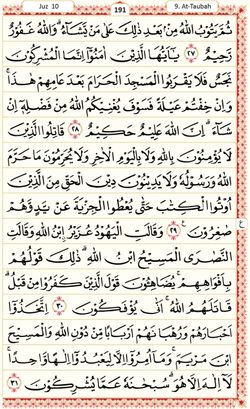 Juz 10
191
9. At-Taubah
ثُمَّ يَتُوْبُ اللّٰهُ مِنْۢ بَعْدِ ذٰلِكَ عَلٰى مَنْ يَّشَاۤءُۗ وَاللّٰهُ غَفُوْرٌ
رَّحِيْمٌ ﴿٢٧﴾ يٰٓاَيُّهَا الَّذِيْنَ اٰمَنُوْٓا اِنَّمَا الْمُشْرِكُوْنَ
نَجَسٌ فَلَا يَقْرَبُوا الْمَسْجِدَ الْحَرَامَ بَعْدَ عَامِهِمْ هٰذَاۚ
وَاِنْ خِفْتُمْ عَيْلَةً فَسَوْفَ يُغْنِيْكُمُ اللّٰهُ مِنْ فَضْلِهٖٓ اِنْ
شَاۤءَۗ اِنَّ اللّٰهَ عَلِيْمٌ حَكِيْمٌ ﴿٢٨﴾ قَاتِلُوا الَّذِيْنَ
لَا يُؤْمِنُوْنَ بِاللّٰهِ وَلَا بِالْيَوْمِ الْاٰخِرِ وَلَا يُحَرِّمُوْنَ مَا حَرَّمَ
اللّٰهُ وَرَسُوْلُهٗ وَلَا يَدِيْنُوْنَ دِيْنَ الْحَقِّ مِنَ الَّذِيْنَ
اُوْتُوا الْكِتٰبَ حَتّٰى يُعْطُوا الْجِزْيَةَ عَنْ يَّدٍ وَّهُمْ
صٰغِرُوْنَ ﴿٢٩﴾ وَقَالَتِ الْيَهُوْدُ عُزَيْرُ ابْنُ اللّٰهِ وَقَالَتِ
ع
النَّصٰرَى الْمَسِيْحُ ابْنُ اللّٰهِۗ ذٰلِكَ قَوْلُهُمْ
بِاَفْوَاهِهِمْۚ يُضَاهِـُٔوْنَ قَوْلَ الَّذِيْنَ كَفَرُوْا مِنْ قَبْلُۗ
قَاتَلَهُمُ اللّٰهُ ۚ اَنّٰى يُؤْفَكُوْنَ ﴿٣٠﴾ اِتَّخَذُوْٓا
اَحْبَارَهُمْ وَرُهْبَانَهُمْ اَرْبَابًا مِّنْ دُوْنِ اللّٰهِ وَالْمَسِيْحَ
ابْنَ مَرْيَمَۚ وَمَآ اُمِرُوْٓا اِلَّا لِيَعْبُدُوْٓا اِلٰهًا وَّاحِدًاۚ
لَآ اِلٰهَ اِلَّا هُوَۗ سُبْحٰنَهٗ عَمَّا يُشْرِكُوْنَ ﴿٣١﴾